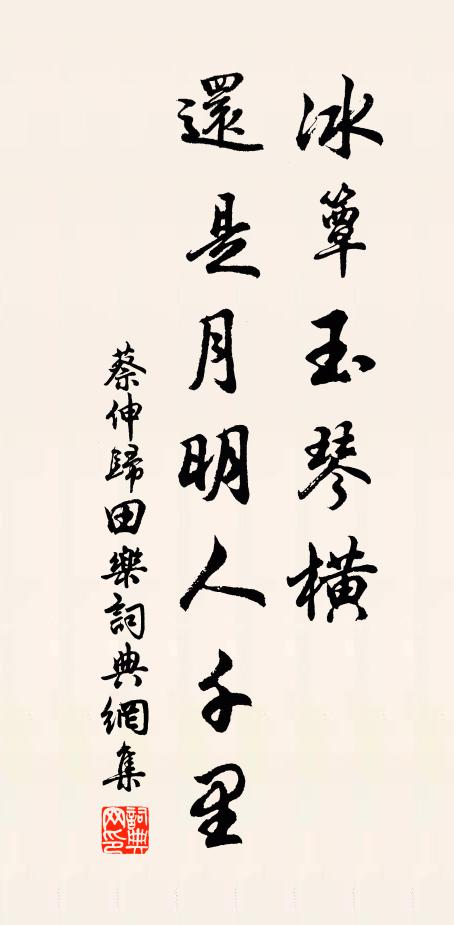 冰簟玉琴橫
還是月明人千里
蔡伸歸田樂詞典網集
詞典网印